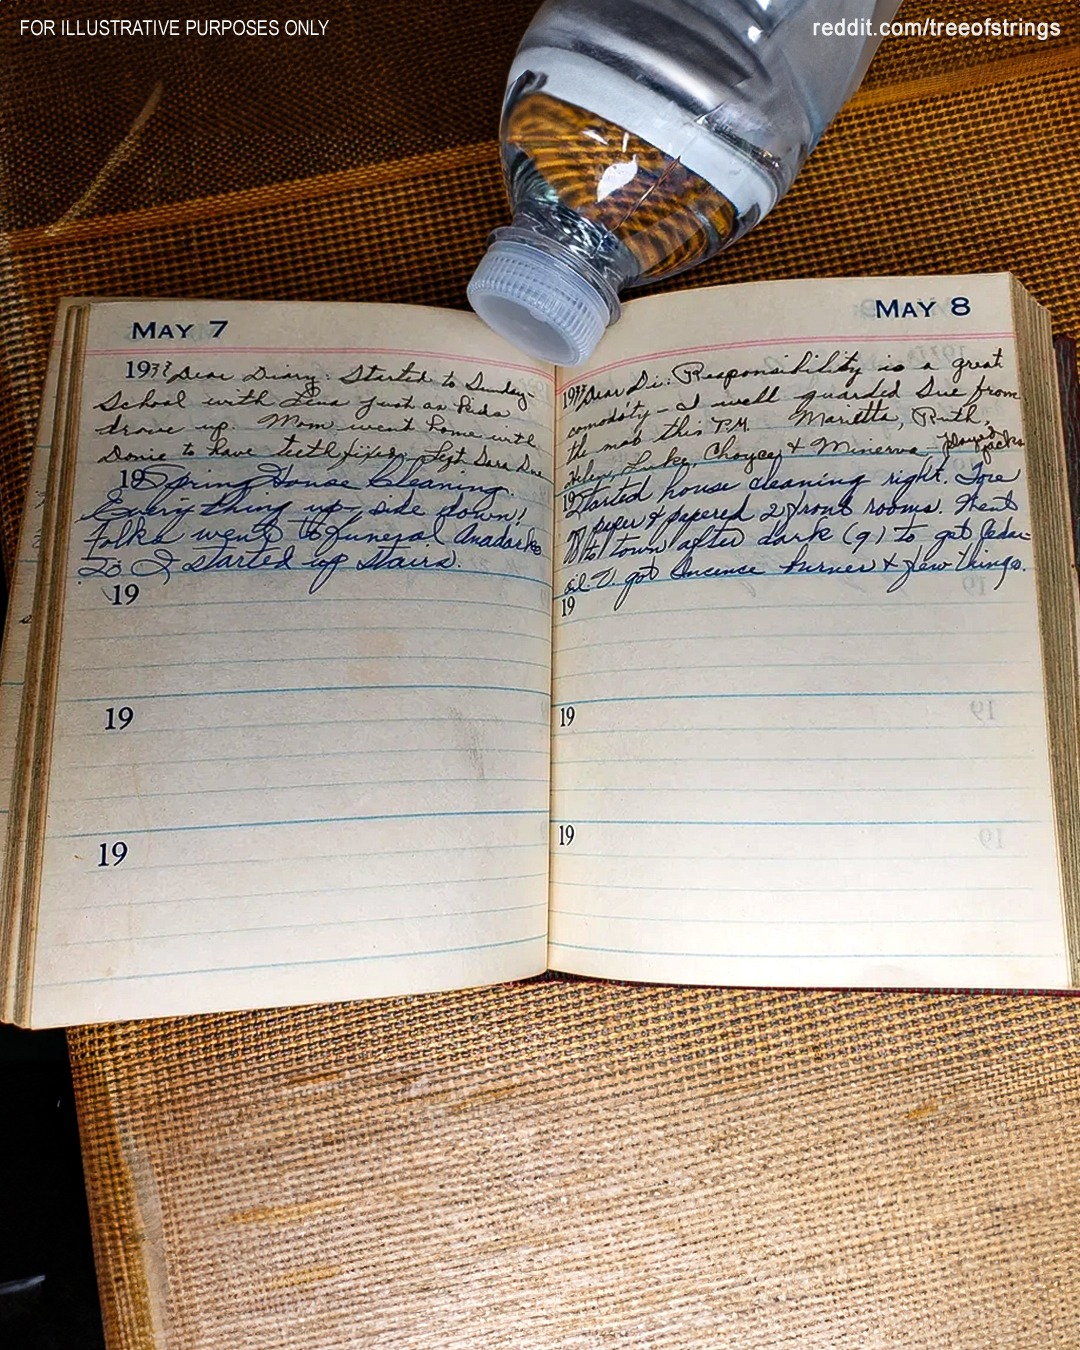 FOR ILLUSTRATIVE PURPOSES ONLY
reddit.com/treeofstrings
MAY 7
19 Dear Diary: Started to Sunday-
School with Lena just as kids
drove up. Mom went home with
Donie to have teeth fixed. Sara Sue
19 Spring House Cleaning.
Everything up-side down!
Folks went to funeral Anadarko
I started up stairs.
19
19
19
MAY 8
19 Dear Di: Responsibility is a great
comodity - I well guarded Sue from
the mob this P.M. Marietta, Ruth,
Helen, Luke, & Minerva played jacks
19 Started house cleaning right. Tore
paper & papered 2 front rooms. Went
to town after dark (9) to get Cedar
oil. V. got Incence burner & few things.
19
19
19